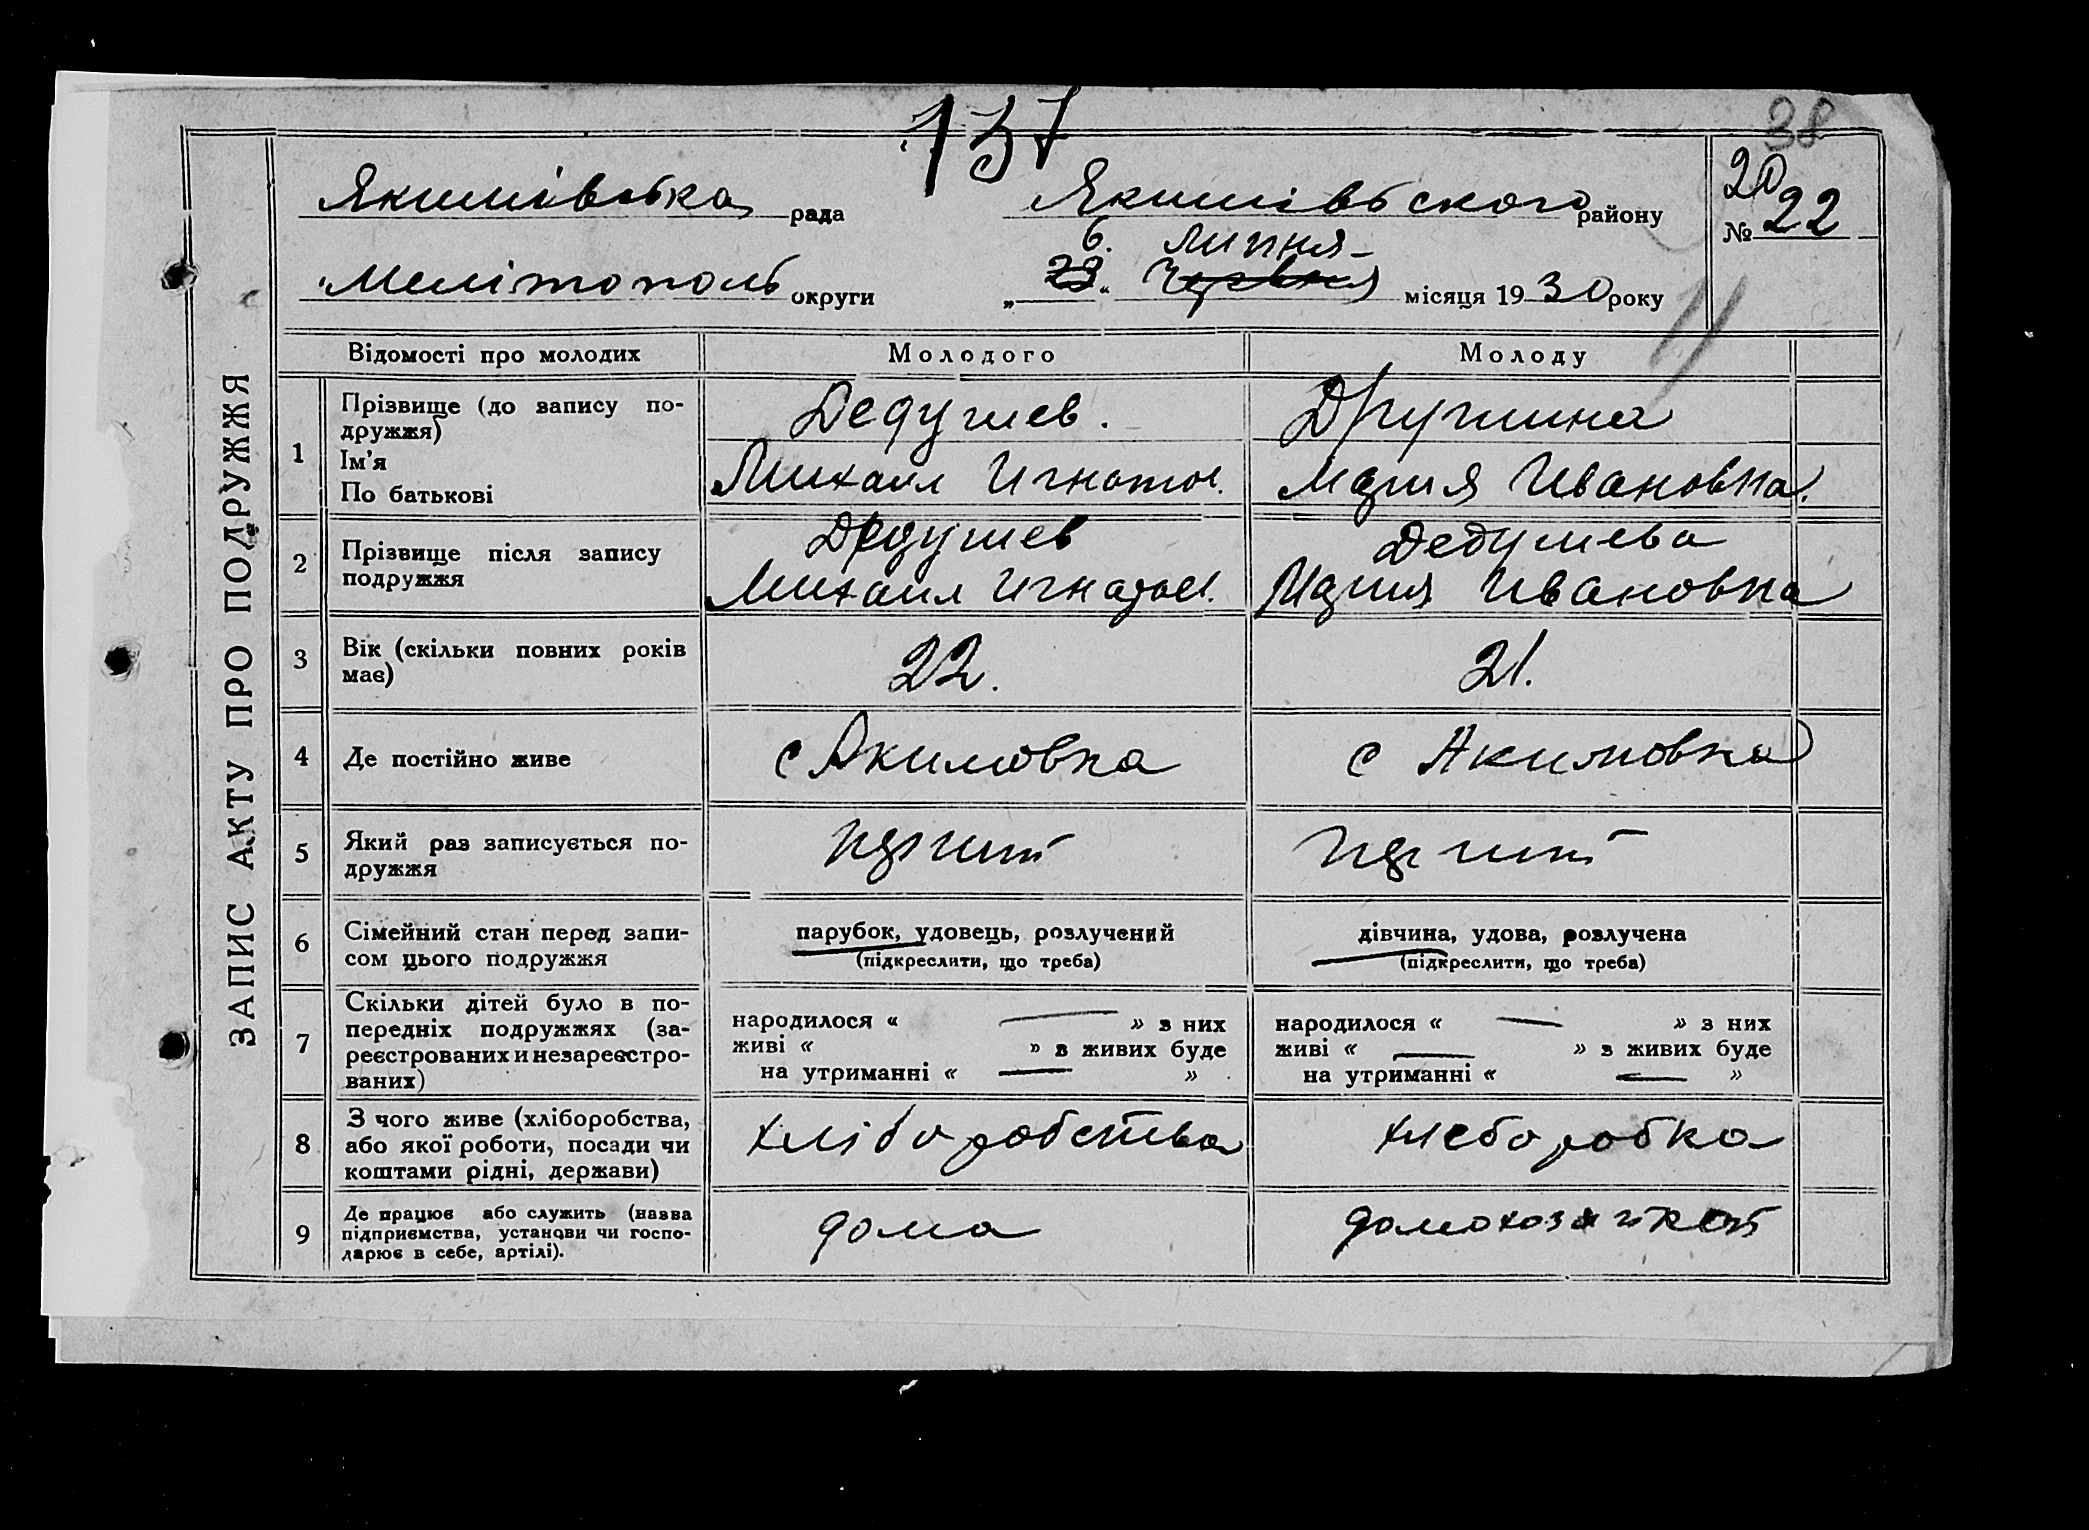 137
38
Якимівська рада
Якимівського району
20
№ 22
6. Липня
Мелітополь округи
„23“ Червня місяця 1930 року
11
ЗАПИС АКТУ ПРО ПОДРУЖЖЯ
Відомості про молодих
Молодого
Молоду
1
Прізвище (до запису по-
дружжя)
Ім'я
По батькові
Дедушев.
Михаил Игнатов.
Дружина
Мария Ивановна.
2
Прізвище після запису
подружжя
Дедушев
Михаил Игнатов.
Дедушева
Мария Ивановна
3
Вік (скільки повних років
має)
22.
21.
4
Де постійно живе
с Акимовка
с Акимовка
5
Який раз записується по-
дружжя
перший
перший
6
Сімейний стан перед запи-
сом цього подружжя
парубок, удовець, розлучений
(підкреслити, що треба)
дівчина, удова, розлучена
(підкреслити, що треба)
7
Скільки дітей було в по-
передніх подружжях (за-
реєстрованих и незареєстро-
ваних)
народилося « — » з них
живі « » з живих буде
на утриманні « — »
народилося « — » з них
живі « — » з живих буде
на утриманні « — »
8
З чого живе (хліборобства,
або якої роботи, посади чи
коштами рідні, держави)
хліборобства
хлеборобка
9
Де працює або служить (назва
підприємства, установи чи госпо-
дарює в себе, артілі).
дома